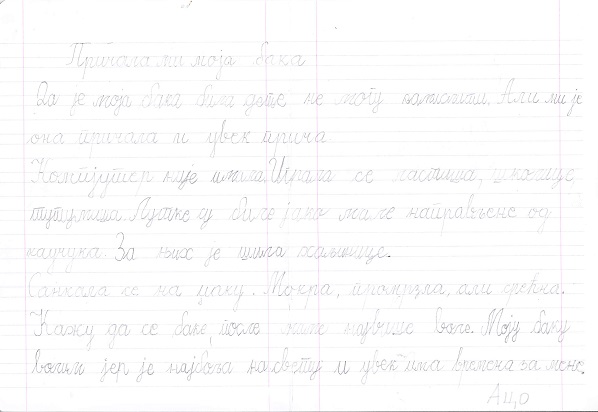 Причала ми моја бака
Да је моја бака била дете не могу замислити. Али ми је
она причала и увек прича
Компјутер није имала. Играла се ластиша, школице
Лутке су биле јако мале направљене од
каучука. За њих је шила хаљинице.
Санкала се на џаку. Мокра, промрзла, али срећна.
Кажу да се баке, после маме највише воле. Моју баку
волим јер је најбоља на свету и увек има времена за мене.
Ацо